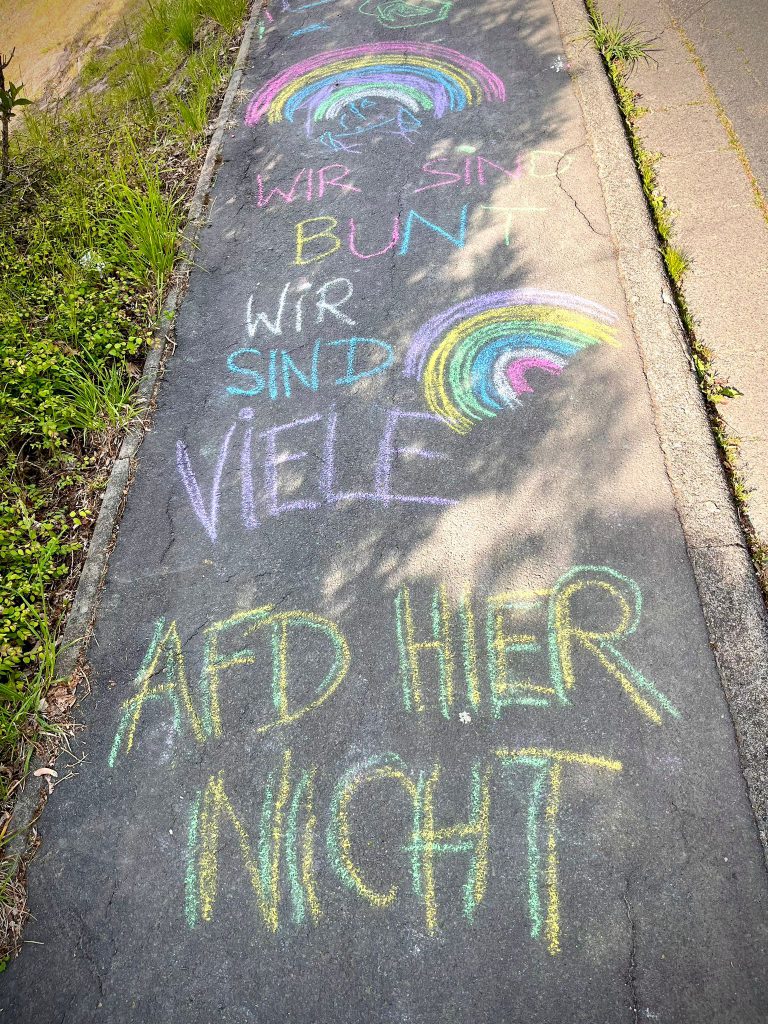 WIR SIND
BUNT
WIR
SIND
VIELE
AFD HIER
NICHT